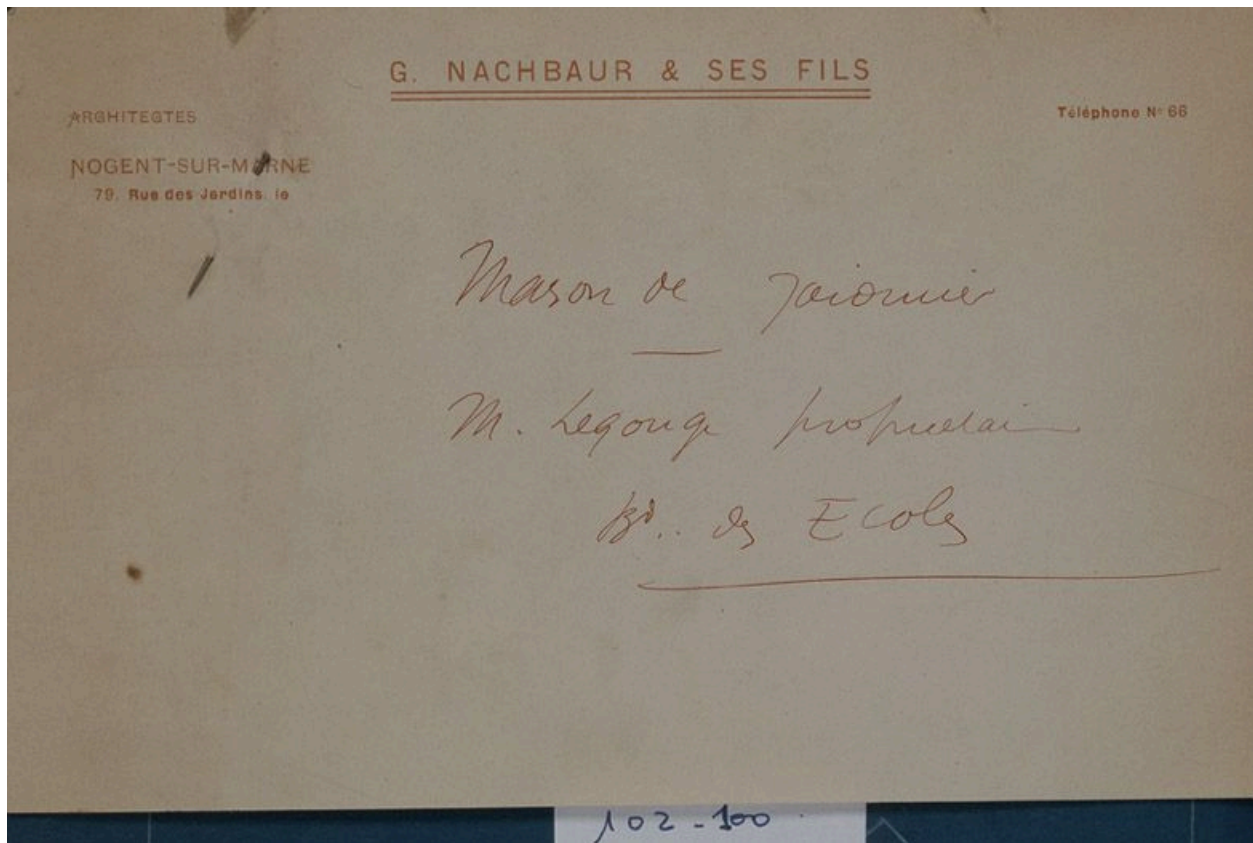 G. NACHBAUR & SES FILS
ARCHITECTES
Téléphone Nº 66
NOGENT-SUR-MARNE
79, Rue des Jardins, le
Maison de
M. Legouge propriétaire
Bd.. des Ecoles
102-100